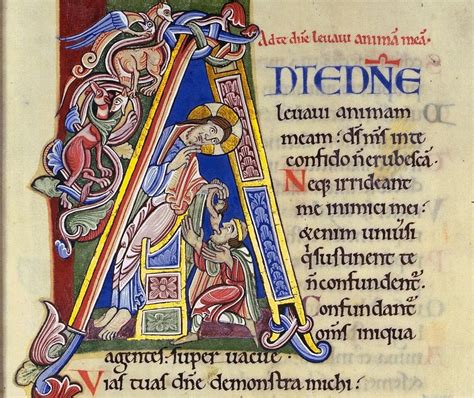 Ad te dn̄e levavi animā meā.
AD TE DN̄E
levavi animam
meam: ds̄ m̄s in te
confido n̄ erubescā.
Neq; irrideant
me inimici mei:
& enim univsi
qͥ sustinent te
n̄ confundent᷑.
Confundant᷑
om̄s iniqua
agentes: super vacue.
Vias tuas dn̄e demonstra michi: